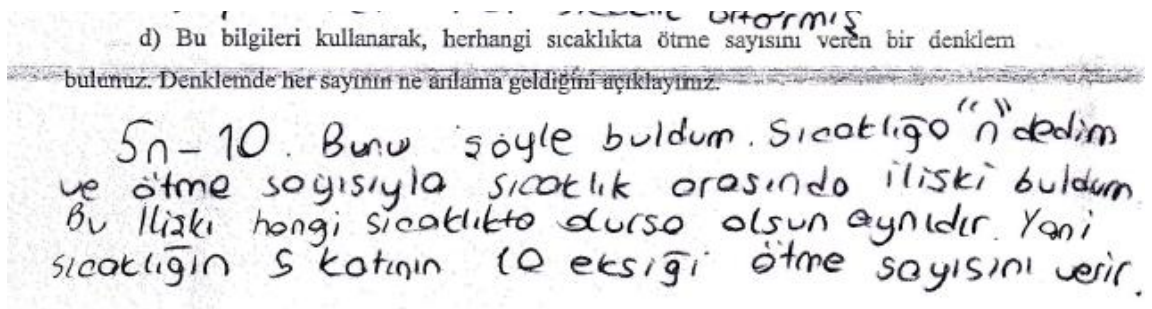 sıcaklık arttırmış
d) Bu bilgileri kullanarak, herhangi sıcaklıkta ötme sayısını veren bir denklem
bulunuz. Denklemde her sayının ne anlama geldiğini açıklayınız.
5n-10. Bunu şöyle buldum. Sıcaklığa "n" dedim
ve ötme sayısıyla sıcaklık arasında ilişki buldum
Bu İlişki hangi sıcaklıkta olursa olsun aynıdır. Yani
sıcaklığın 5 katının 10 eksiği ötme sayısını verir.